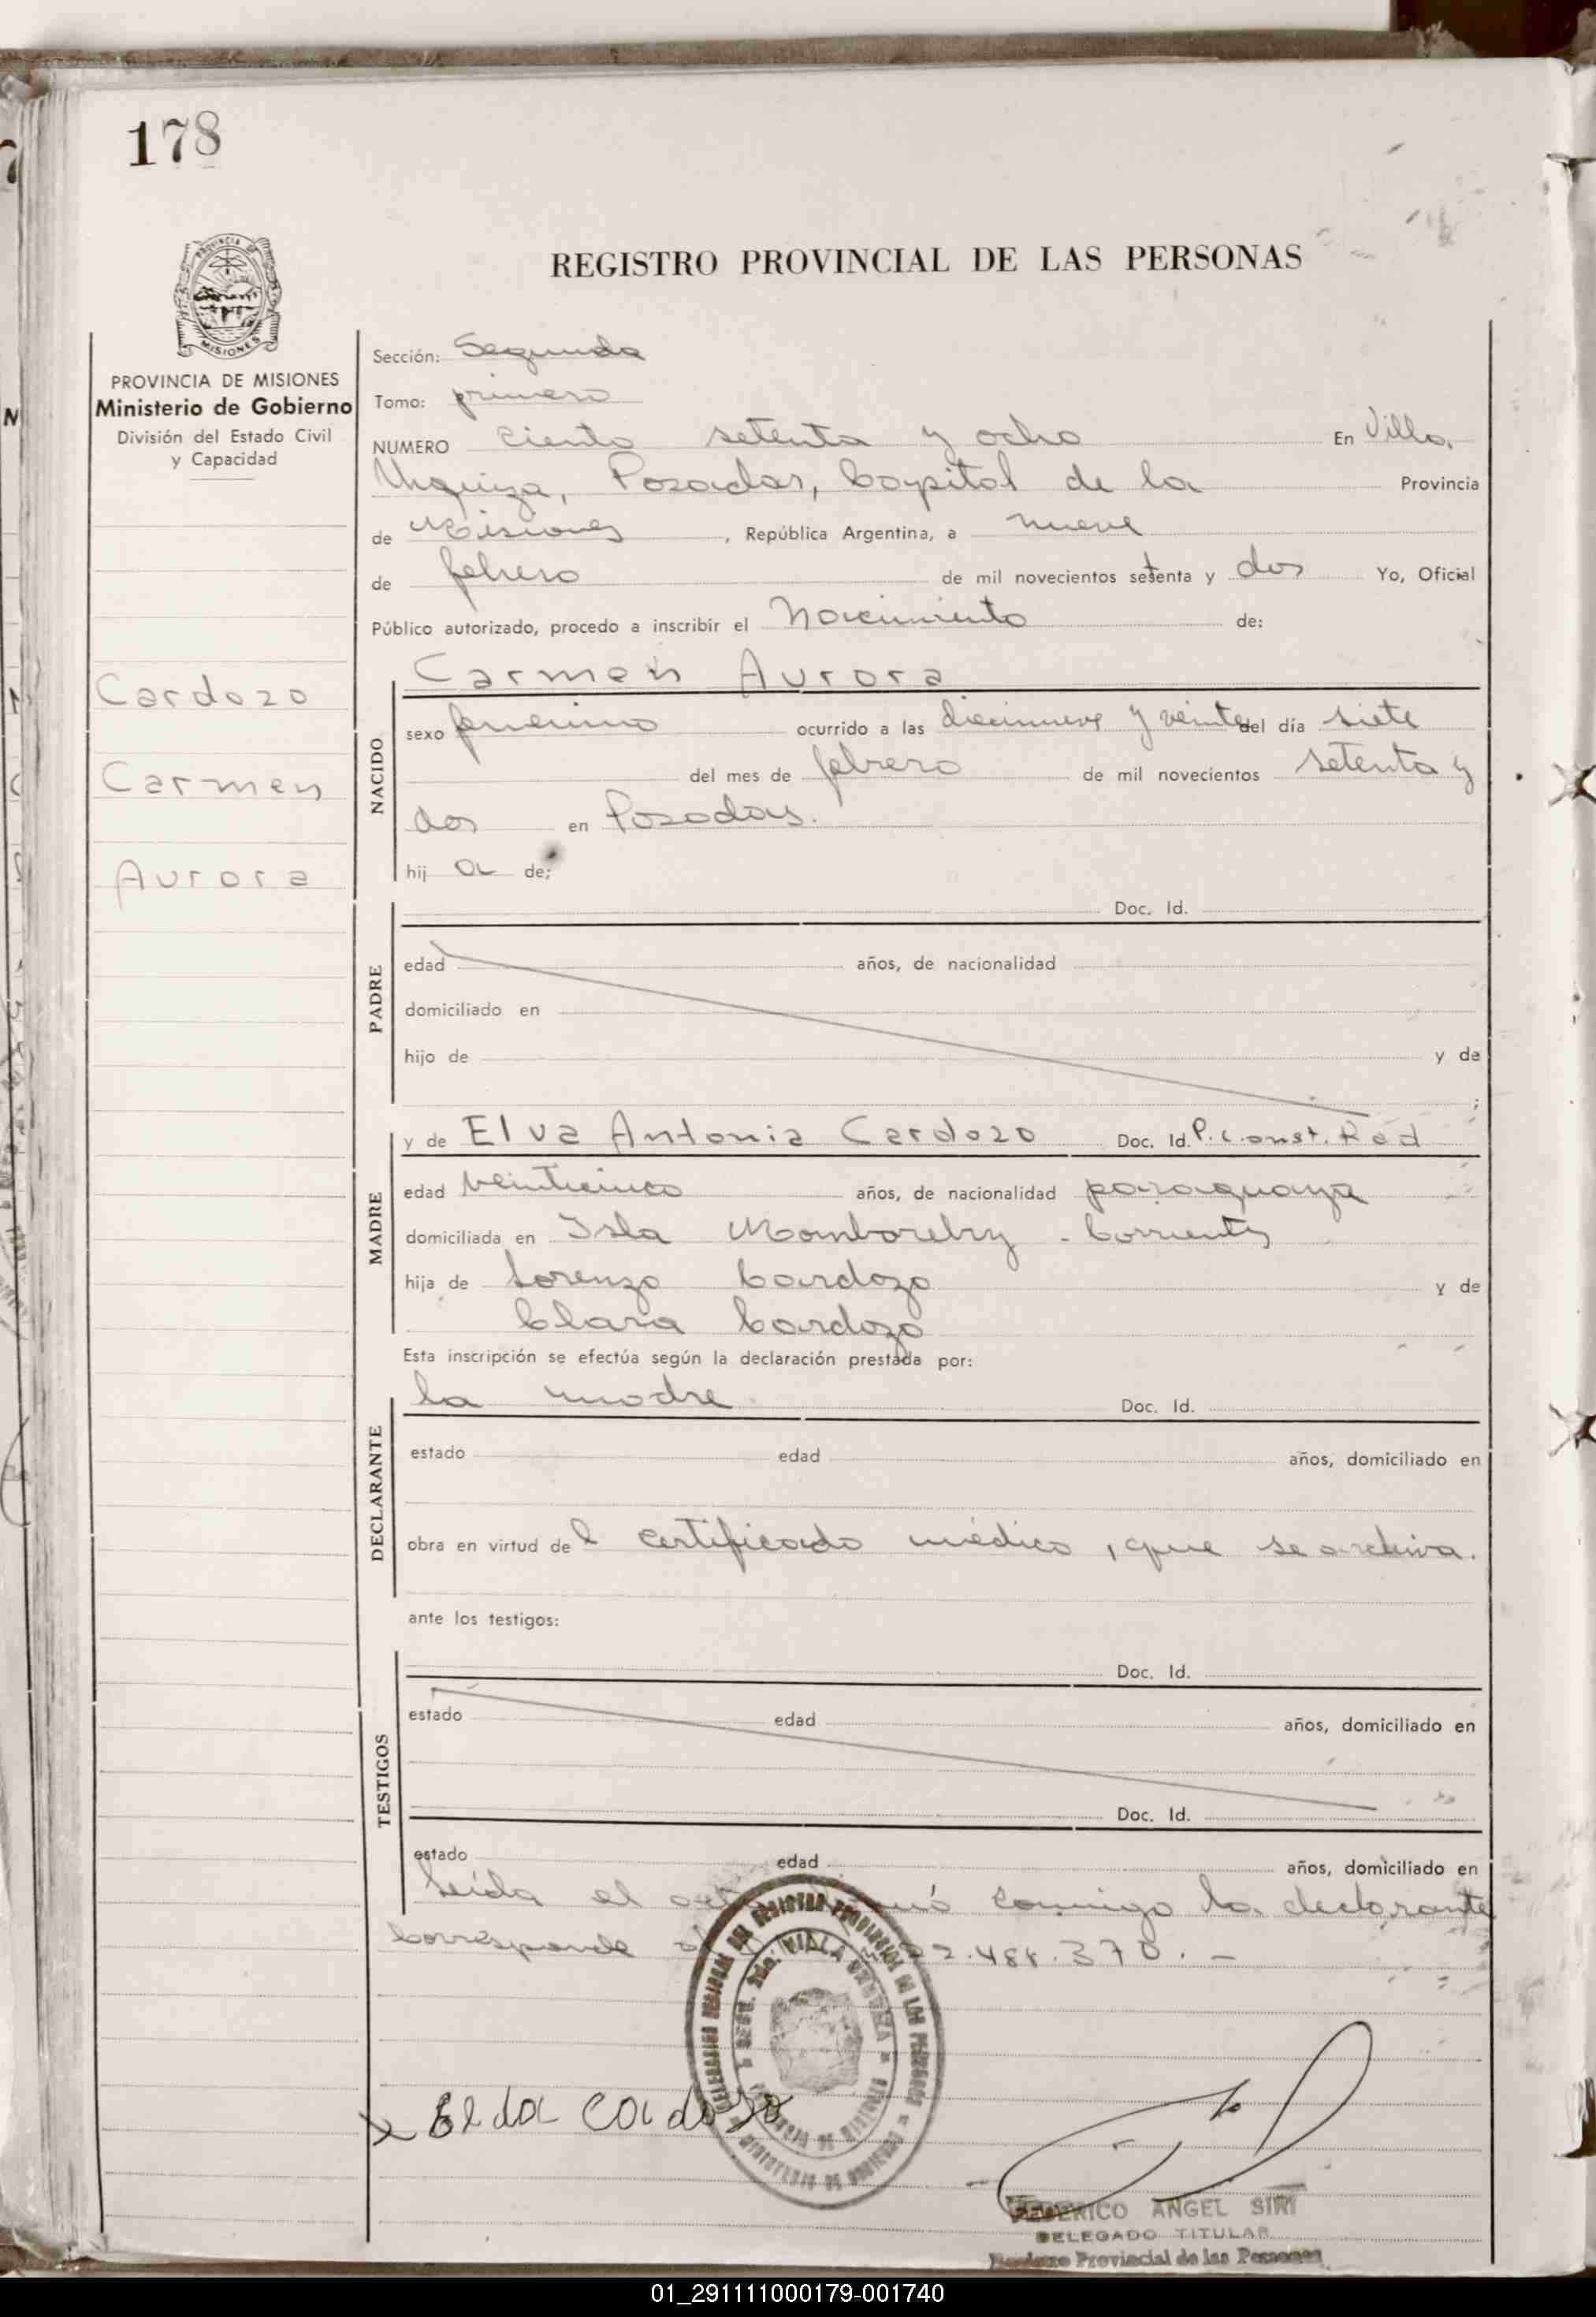 178
PROVINCIA DE
MISIONES
PROVINCIA DE MISIONES
Ministerio de Gobierno
División del Estado Civil
y Capacidad
Cardozo
Carmen
Aurora
REGISTRO PROVINCIAL DE LAS PERSONAS
Sección: Segunda
Tomo: primero
NUMERO ciento setenta y ocho En Villa
Urquiza, Posadas, Capital de la Provincia
de Misiones, República Argentina, a nueve
de febrero de mil novecientos setenta y dos Yo, Oficial
Público autorizado, procedo a inscribir el Nacimiento de:
NACIDO
Carmen Aurora
sexo femenino ocurrido a las diecinueve y veinte del día siete
del mes de febrero de mil novecientos setenta y
dos en Posadas.
hij a de:
PADRE
Doc. Id.
edad años, de nacionalidad
domiciliado en
hijo de y de
;
MADRE
y de Elva Antonia Cardozo Doc. Id. P. Const. Rad
edad veinticinco años, de nacionalidad paraguaya
domiciliada en Isla - Corrientes
hija de Lorenzo Cardozo y de
Clara Cardozo
Esta inscripción se efectúa según la declaración prestada por:
DECLARANTE
la madre Doc. Id.
estado edad años, domiciliado en
obra en virtud de l certificado médico, que se archiva.
ante los testigos:
TESTIGOS
Doc. Id.
estado edad años, domiciliado en
Doc. Id.
estado edad años, domiciliado en
Leída el conmigo la declarante
Corresponde
VILLA URQUIZA
x Elda Cardozo
FEDERICO ANGEL SIRI
DELEGADO TITULAR
Registro Provincial de las Personas
01_291111000179-001740